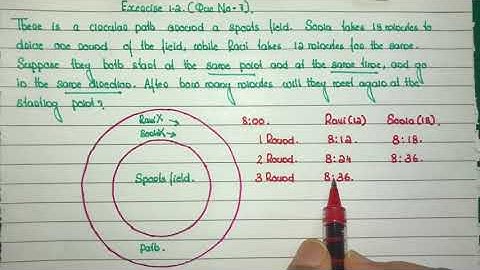 Exercise 1.2. (Que No - 7).
There is a circular path around a sports field. Sonia takes 18 minutes to
drive one round of the field, while Ravi takes 12 minutes for the same.
Suppose they both start at the same point and at the same time, and go
in the same direction. After how many minutes will they meet again at the
starting point?
Ravi X →
Sonia X →
Sports field.
Path.
8:00. Ravi (12) Sonia (18).
1 Round. 8:12. 8:18.
2 Round. 8:24 8:36.
3 Round 8:36.